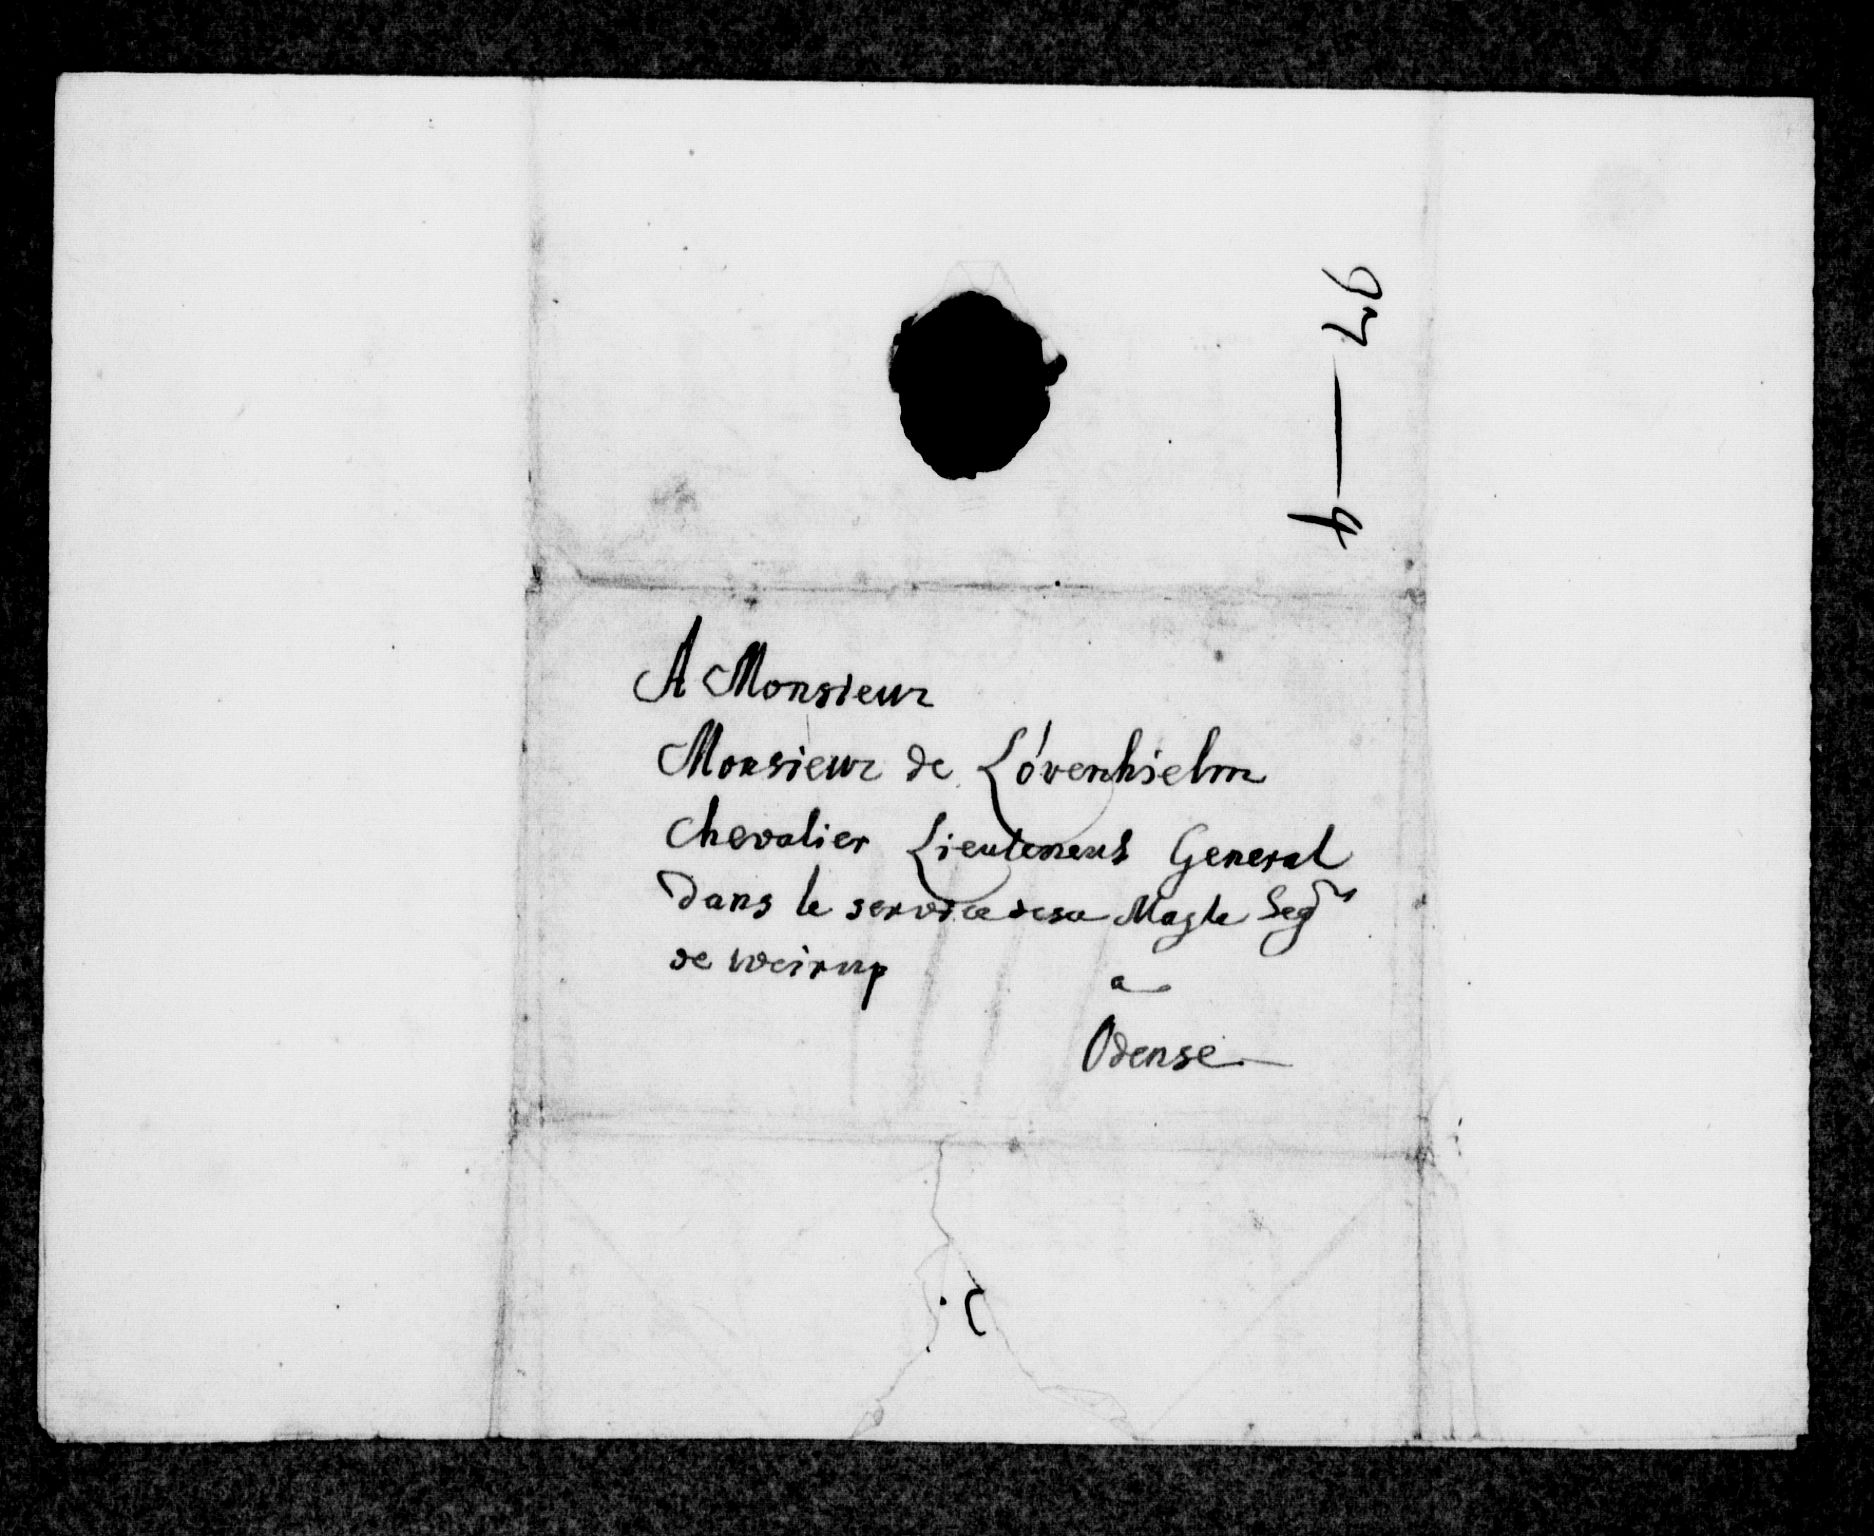 A Monsieur
Monsieur de Lóvenhielm
Chevalier Lieutenent General
Dans le service de sa Majte Segr
de weirup
a
Odense